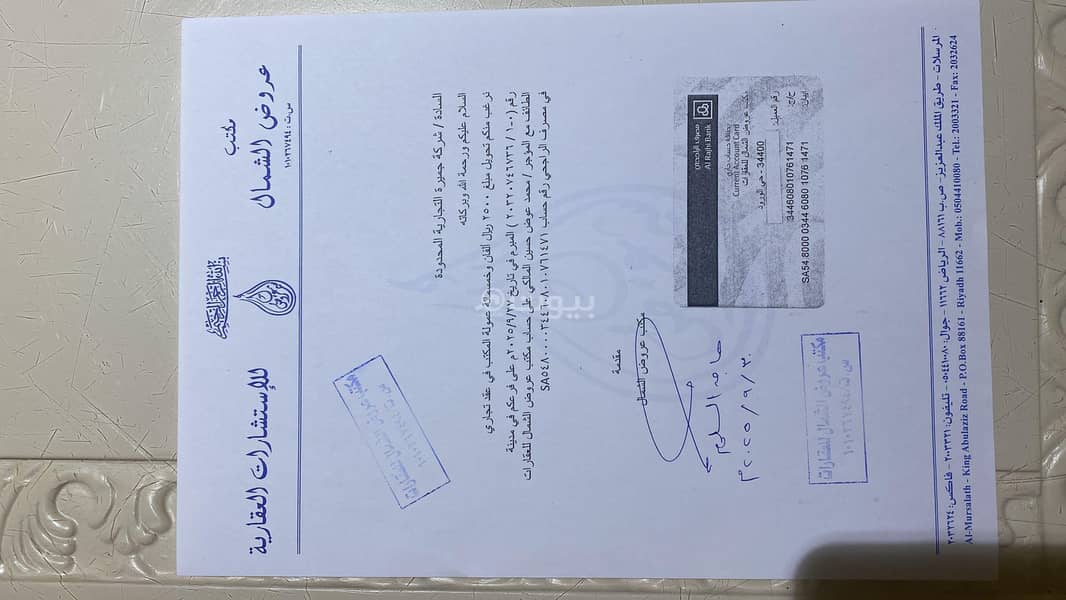 بسم الله الرحمن الرحيم
مكتب
عروض الشمال
للإستشارات العقارية
س.ت: ١٠١٠٢٦٧٤٩٤
السادة / شركة جميرة التجارية المحدودة
السلام عليكم ورحمة الله وبركاته
نرغب منكم تحويل مبلغ ٢٥٠٠ ريال الفان وخمسمائة عمولة المكتب في عقد تجاري
رقم (٢٠٣٢٠٧٤٦٧٣٦ / ١-٠) المبرم في تاريخ ٢٠٢٥/٩/٢٧م على فرعكم في مدينة
الطائف مع الموجر / محمد عوض حسين المالكي على حساب مكتب عروض الشمال للعقارات
في مصرف الراجحي رقم حساب SA٥٤٨٠٠٠٠٣٤٤٦٠٨٠١٠٧٦١٤٧١
مصرف الراجحي
Al Rajhi Bank
بطاقة حساب جاري
Current Account Card
مكتب عروض الشمال للعقارات
رقم العميل:
34400 - حي الورود
ح/ج:
344608010761471
ايبان:
SA54 8000 0344 6080 1076 1471
مقدمة
مكتب عروض الشمال
٢٠٢٥/٩/٣٠م
مكتب عروض الشمال للعقارات
س.ت ١٠١٠٢٦٧٤٩٤
بيوت
المرسلات - طريق الملك عبدالعزيز - ص.ب ٨٨١٦١ - الرياض ١١٦٦٢ - جوال: ٠٥٠٤٤١٠٠٨٠ - تليفون: ٢٠٠٣٣٢١ - فاكس: ٢٠٣٢٦٢٤
Al-Mursalath - King Abulaziz Road - P.O.Box 88161 - Riyadh 11662 - Mob.: 0504410080 - Tel.: 2003321 - Fax: 2032624